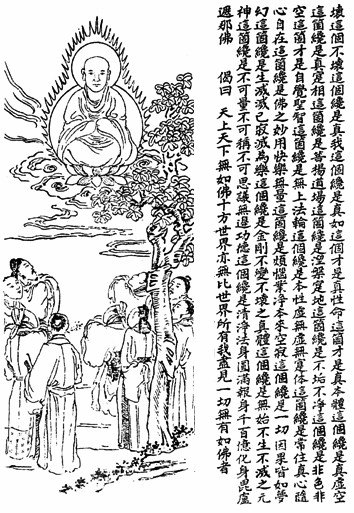 壞這个不壞這個纔是真我這個纔是真如這个才是真性命這箇才是真本體這个纔是真虛空
這箇纔是真寔相這箇纔是菩提道場這箇纔是涅槃定地這箇纔是不垢不淨這個纔是非色非
空這箇才是自覺聖智這箇纔是無上法輪這個纔是本性虛無虛無實體這箇纔是常住真心隨
心自在這箇纔是佛之妙用快樂無量這箇纔是煩惱業淨本來空寂這個纔是一切因果皆如夢
幻這箇纔是生滅滅已寂滅為樂這個纔是金剛不變不壞之真體這個纔是無始不生不滅之元
神這箇纔是不可量不可稱不可思議無邊功德這個纔是清淨法身圓滿報身千百億化身毘盧
遮那佛 偈曰 天上天下無如佛十方世界亦無比世界所有我盡見一切無有如佛者